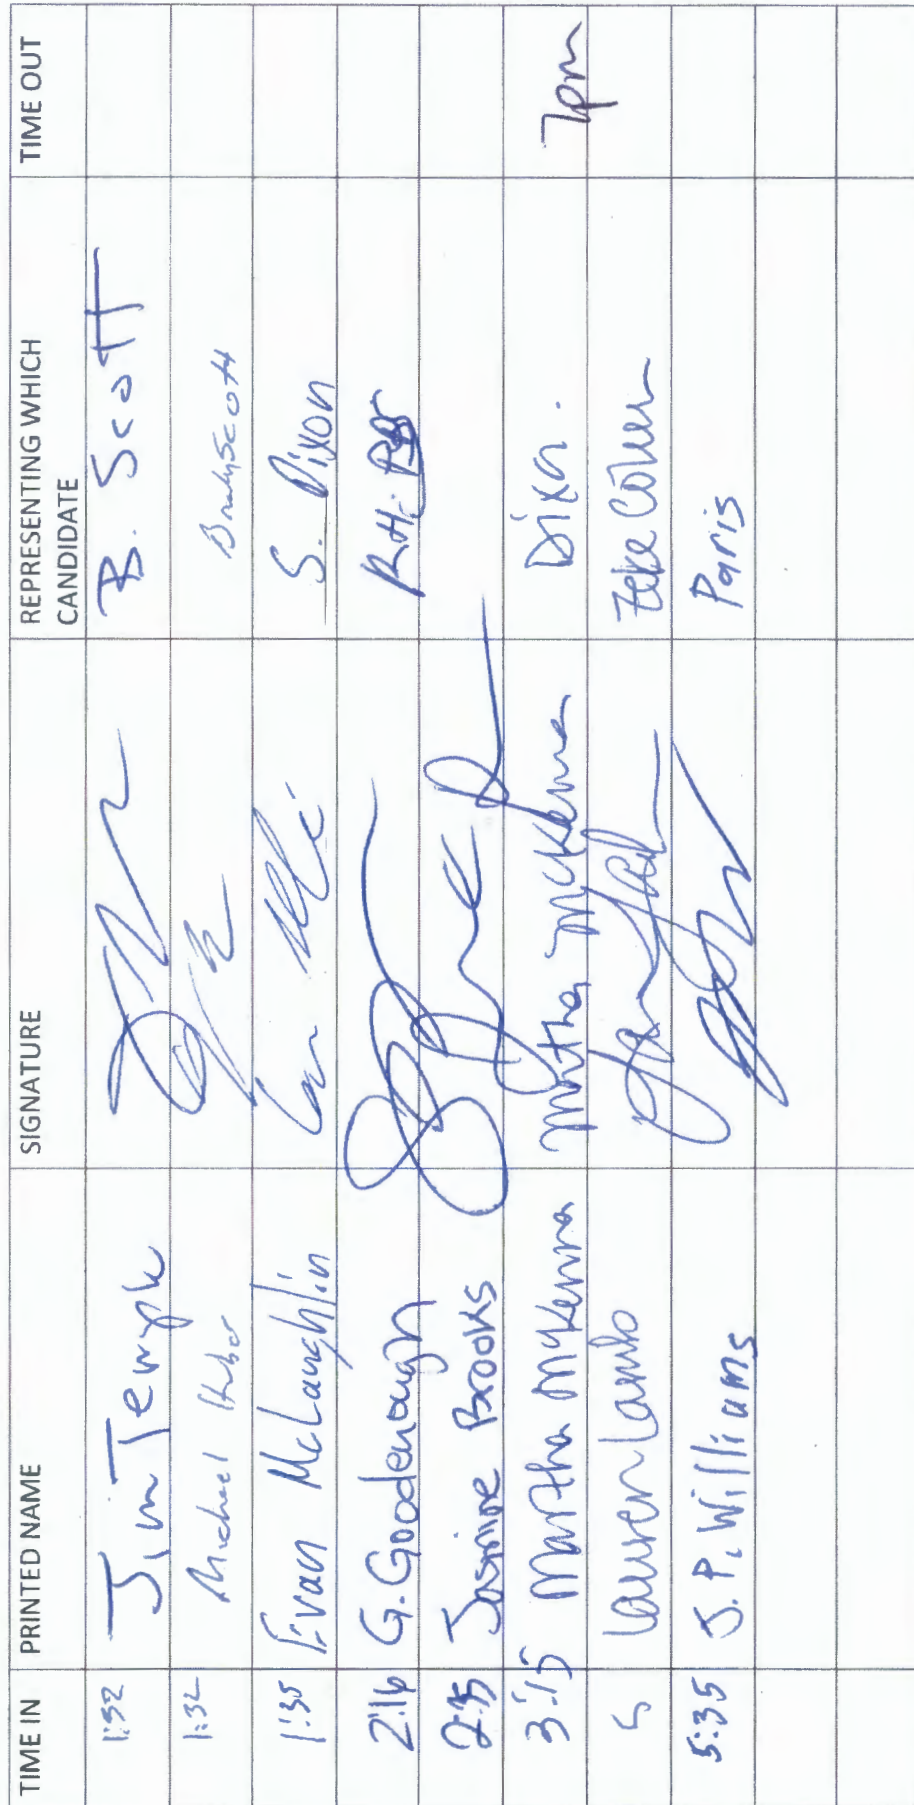 TIME IN PRINTED NAME SIGNATURE REPRESENTING WHICH CANDIDATE TIME OUT
1:32 Jim Temple B. Scott
1:32 Michael Brandy Scott
1:35 Evan McLaughlin S. Dixon
2:16 G. Goodenough
2:15 Jasmine Brooks
3:15 Martha McKenna Martha McKenna Dixon. 7pm
5 Lauren Lamb Zeke Cohen
5:35 J.P. Williams Paris